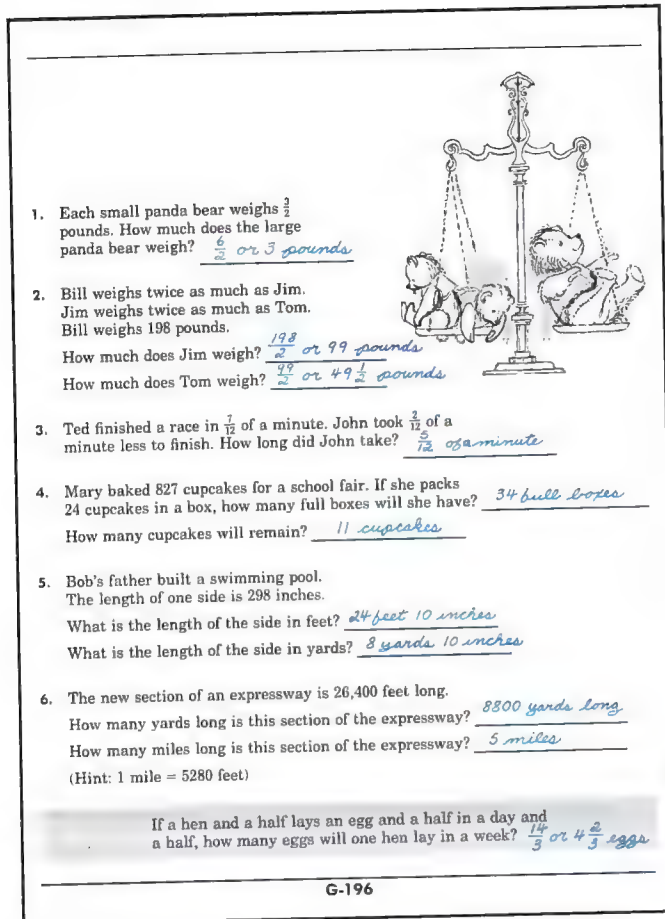 1. Each small panda bear weighs 3/2
pounds. How much does the large
panda bear weigh? 6/2 or 3 pounds
2. Bill weighs twice as much as Jim.
Jim weighs twice as much as Tom.
Bill weighs 198 pounds.
How much does Jim weigh? 198/2 or 99 pounds
How much does Tom weigh? 99/2 or 49 1/2 pounds
3. Ted finished a race in 7/12 of a minute. John took 2/12 of a
minute less to finish. How long did John take? 5/12 of a minute
4. Mary baked 827 cupcakes for a school fair. If she packs
24 cupcakes in a box, how many full boxes will she have? 34 full boxes
How many cupcakes will remain? 11 cupcakes
5. Bob's father built a swimming pool.
The length of one side is 298 inches.
What is the length of the side in feet? 24 feet 10 inches
What is the length of the side in yards? 8 yards 10 inches
6. The new section of an expressway is 26,400 feet long.
How many yards long is this section of the expressway? 8800 yards long
How many miles long is this section of the expressway? 5 miles
(Hint: 1 mile = 5280 feet)
If a hen and a half lays an egg and a half in a day and
a half, how many eggs will one hen lay in a week? 14/3 or 4 2/3 eggs
G-196